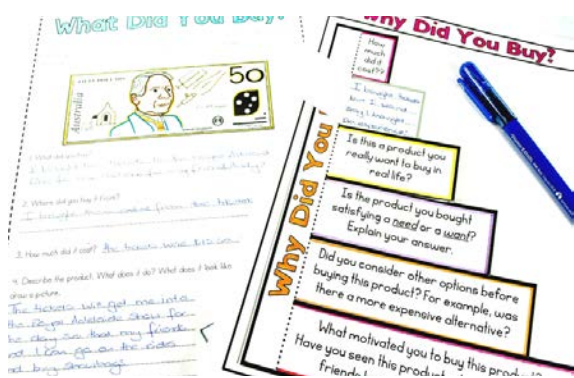 What Did You Buy?
Australia
50
2. Where did you buy it from?
I bought
from the
3. How much did it cost? the tickets were
4. Describe the product. What does it do? What does it look like
draw a picture.
The tickets will get me into
the Royal Adelaide Show for
the day so that my friends
and I can go on the rides
and buy showbags
Why Did You Buy?
How
much
did it
cost??
I bought tickets
but I
Why Did You
Is this a product you
really want to buy in
real life?
Is the product you bought
satisfying a need or a want?
Explain your answer.
Did you consider other options before
buying this product? For example, was
there a more expensive alternative?
What motivated you to buy this product?
Have you seen this product
friends